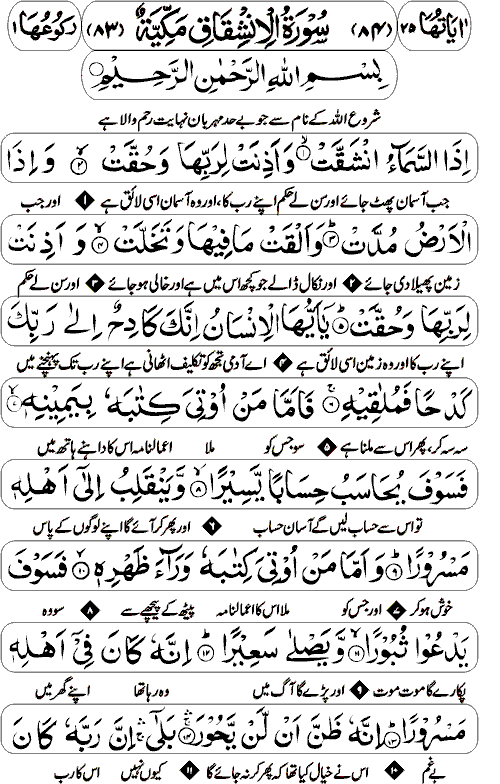 اٰیَاتُهَا ۲۵ (۸۴) سُوْرَةُ الْاِنْشِقَاقِ مَكِّيَّةٌ (۸۳) رُكُوْعُهَا ۱
بِسْمِ اللهِ الرَّحْمٰنِ الرَّحِيْمِ
شروع اللہ کے نام سے جو بے حد مہربان نہایت رحم والا ہے
اِذَا السَّمَآءُ انْشَقَّتْ ۱ وَ اَذِنَتْ لِرَبِّهَا وَ حُقَّتْ ۲ وَ اِذَا
جب آسمان پھٹ جائے اور سن لے حکم اپنے رب کا، اور وہ آسمان اسی لائق ہے ۱ اور جب
الْاَرْضُ مُدَّتْ ۳ وَ اَلْقَتْ مَا فِيْهَا وَ تَخَلَّتْ ۴ وَ اَذِنَتْ
زمین پھیلا دی جائے ۲ اور نکال ڈالے جو کچھ اس میں ہے اور خالی ہو جائے ۳ اور سن لے حکم
لِرَبِّهَا وَ حُقَّتْ ۵ يٰۤاَيُّهَا الْاِنْسَانُ اِنَّكَ كَادِحٌ اِلٰى رَبِّكَ
اپنے رب کا اور وہ زمین اسی لائق ہے ۴ اے آدمی تجھ کو تکلیف اٹھانی ہے اپنے رب تک پہنچنے میں
كَدْحًا فَمُلٰقِيْهِ ۶ فَاَمَّا مَنْ اُوْتِيَ كِتٰبَهٗ بِيَمِيْنِهٖ ۷
سہہ سہہ کر، پھر اس سے ملنا ہے ۵ سو جس کو ملا اعمالنامہ اس کا داہنے ہاتھ میں
فَسَوْفَ يُحَاسَبُ حِسَابًا يَّسِيْرًا ۸ وَّ يَنْقَلِبُ اِلٰۤى اَهْلِهٖ
تو اس سے حساب لیں گے آسان حساب ۶ اور پھر کر آئے گا اپنے لوگوں کے پاس
مَسْرُوْرًا ۹ وَ اَمَّا مَنْ اُوْتِيَ كِتٰبَهٗ وَرَآءَ ظَهْرِهٖ ۱۰ فَسَوْفَ
خوش ہو کر ۷ اور جس کو ملا اس کا اعمالنامہ پیٹھ کے پیچھے سے ۸ سو وہ
يَدْعُوْا ثُبُوْرًا ۱۱ وَّ يَصْلٰى سَعِيْرًا ۱۲ اِنَّهٗ كَانَ فِيْۤ اَهْلِهٖ
پکارے گا موت موت ۹ اور پڑے گا آگ میں وہ رہا تھا اپنے گھر میں
مَسْرُوْرًا ۱۳ اِنَّهٗ ظَنَّ اَنْ لَّنْ يَّحُوْرَ ۱۴ بَلٰۤى اِنَّ رَبَّهٗ كَانَ
بے غم ۱۰ اس نے خیال کیا تھا کہ پھر کر نہ جائے گا ۱۱ کیوں نہیں اس کا رب